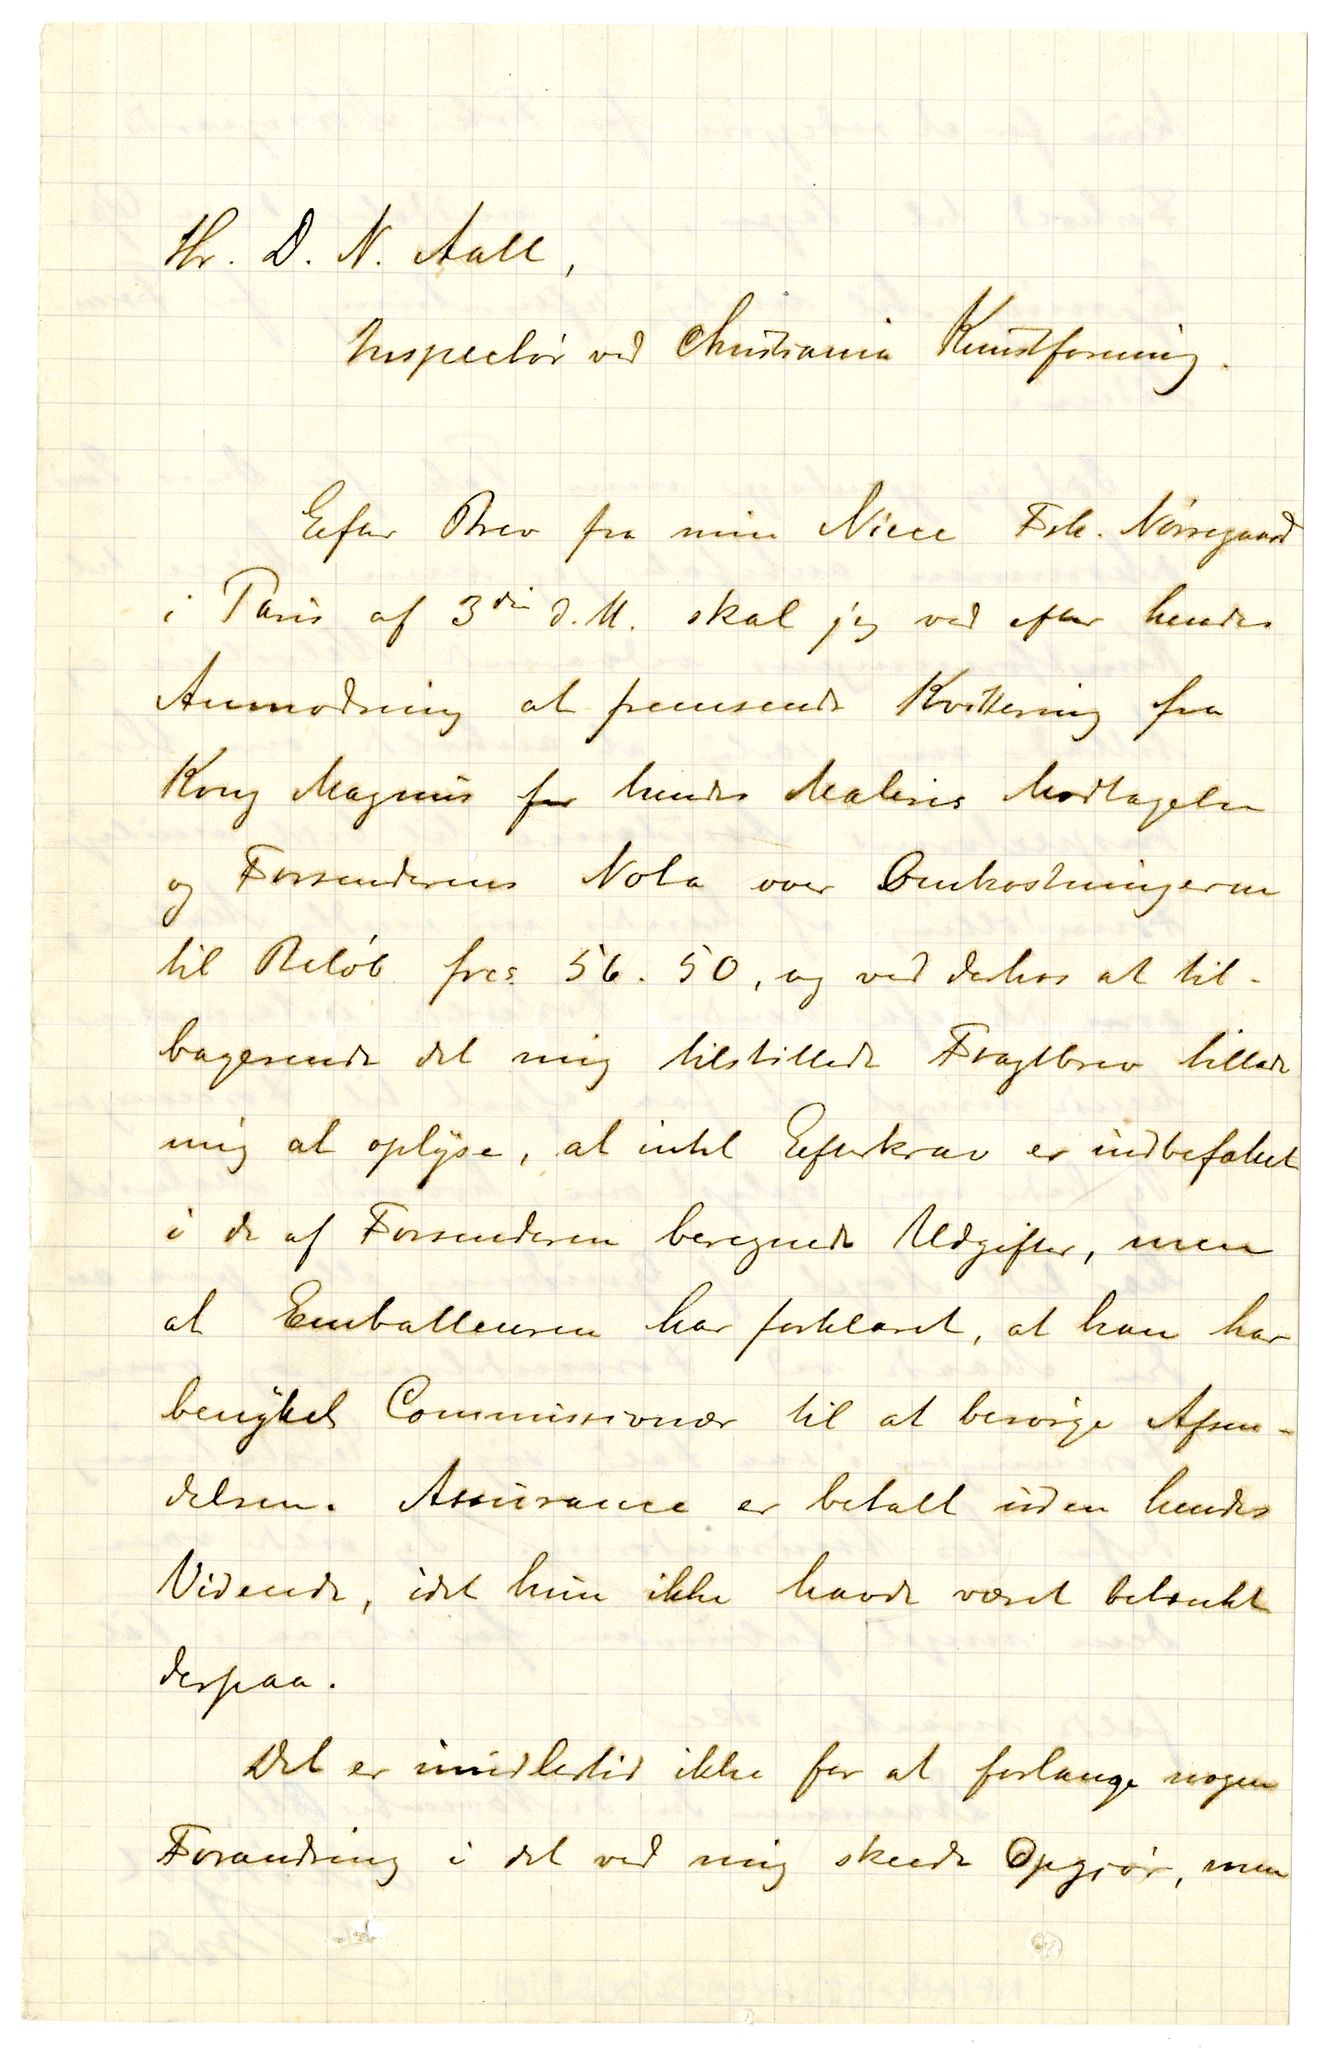 Hr. D. N. Aall,
Inspectør ved Christiania Kunstforening.
Efter Brev fra min Niece Frk. Nørregaard
i Paris af 3die d. M. skal jeg ved efter hendes
Anmodning at fremsende Kvittering fra
Kong Magnus for hendes Maleris Modtagelse
og Forsenderens Nota over Omkostningerne
til Beløb frcs. 56.50, og ved derhos at til-
bagesende det mig tilstillede Fragtbrev tillade
mig at oplyse, at intet Efterkrav er indbefattet
i de af Forsenderen beregnede Udgifter, men
at Emballeuren har forklaret, at han har
benyttet Commissionær til at besørge Afsen-
delsen. Assurance er betalt uden hendes
Vidende, idet hun ikke havde været betænkt
derpaa.
Det er imidlertid ikke for at forlange nogen
Forandring i det ved mig skeede Opgjør, men